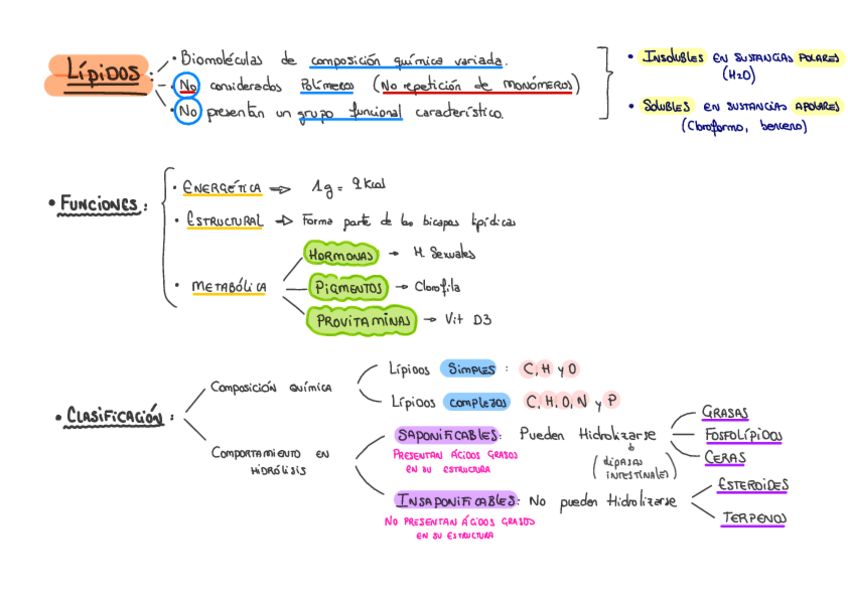 LÍPIDOS :
· Biomoléculas de composición química variada.
- No considerados Polímeros (No repetición de MONÓMEROS)
· No presentan un grupo funcional característico.
• INSOLUBLES EN SUSTANCIAS POLARES
(H2O)
• SOLUBLES EN SUSTANCIAS APOLARES
(Cloroformo, benceno)
• FUNCIONES :
· ENERGÉTICA → 1g = 9 Kcal
· ESTRUCTURAL → Forma parte de las bicapas lipídicas
· METABÓLICA
HORMONAS → H. Sexuales
PIGMENTOS → Clorofila
PROVITAMINAS → Vit D3
• CLASIFICACIÓN :
Composición química
Lípidos SIMPLES : C, H y O
Lípidos COMPLEJOS C, H, O, N y P
COMPORTAMIENTO EN
HIDRÓLISIS
SAPONIFICABLES: Pueden Hidrolizarse
PRESENTAN ÁCIDOS GRASOS
EN SU ESTRUCTURA
(lipasas
intestinales)
GRASAS
FOSFOLÍPIDOS
CERAS
INSAPONIFICABLES: No pueden Hidrolizarse
NO PRESENTAN ÁCIDOS GRASOS
EN SU ESTRUCTURA
ESTEROIDES
TERPENOS